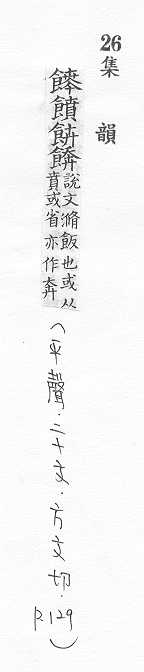 26
集韻
饙
說文滫飯也或从
賁或省亦作奔
(平聲.二十文.方文切.P.129)